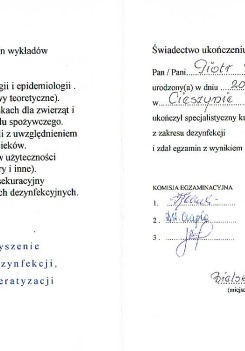 n wykładów
gii i epidemiologii .
wy teoretyczne).
kach dla zwierząt i
łu spożywczego.
li z uwzględnieniem
ieków.
w użyteczności
ry i inne).
sekuracyjny
ch dezynfekcyjnych.
yszenie
zynfekcji,
eratyzacji
Świadectwo ukończeni
Pan / Pani Piotr
urodzony(a) w dniu 20
w Cieszynie
ukończył specjalistyczny ku
z zakresu dezynfekcji
i zdał egzamin z wynikiem
KOMISJA EGZAMINACYJNA
1.
2.
3.
Bielsk
(miejsc